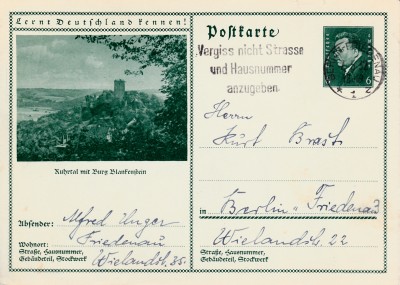 Lernt Deutschland kennen!
Ruhrtal mit Burg Blankenstein
Absender: Alfred Unger
Wohnort: Friedenau
Straße, Hausnummer,
Gebäudeteil, Stockwerk
Wielandstr. 35.
Postkarte
Vergiss nicht Strasse
und Hausnummer
anzugeben.
6
Herrn
Kurt
in Berlin-Friedenau
Wielandstr. 22
Straße, Hausnummer,
Gebäudeteil, Stockwerk